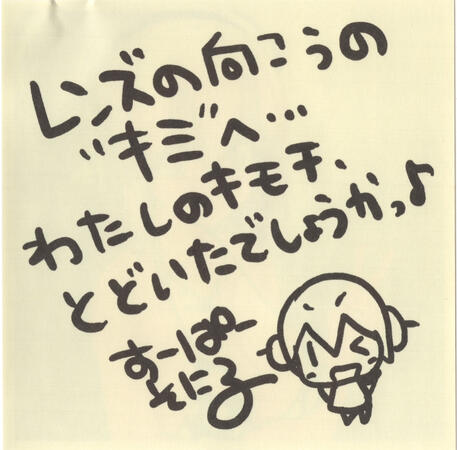 レンズの向こうの
"キミ"へ…
わたしのキモチ、
とどいたでしょうかっ♪
すーぱー
そに子